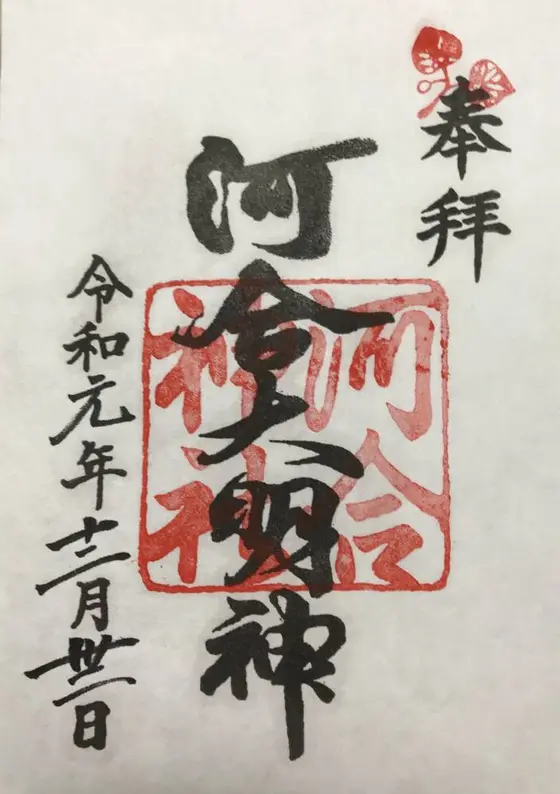 奉拝
河合大明神
河合
神社
令和元年十二月丗一日